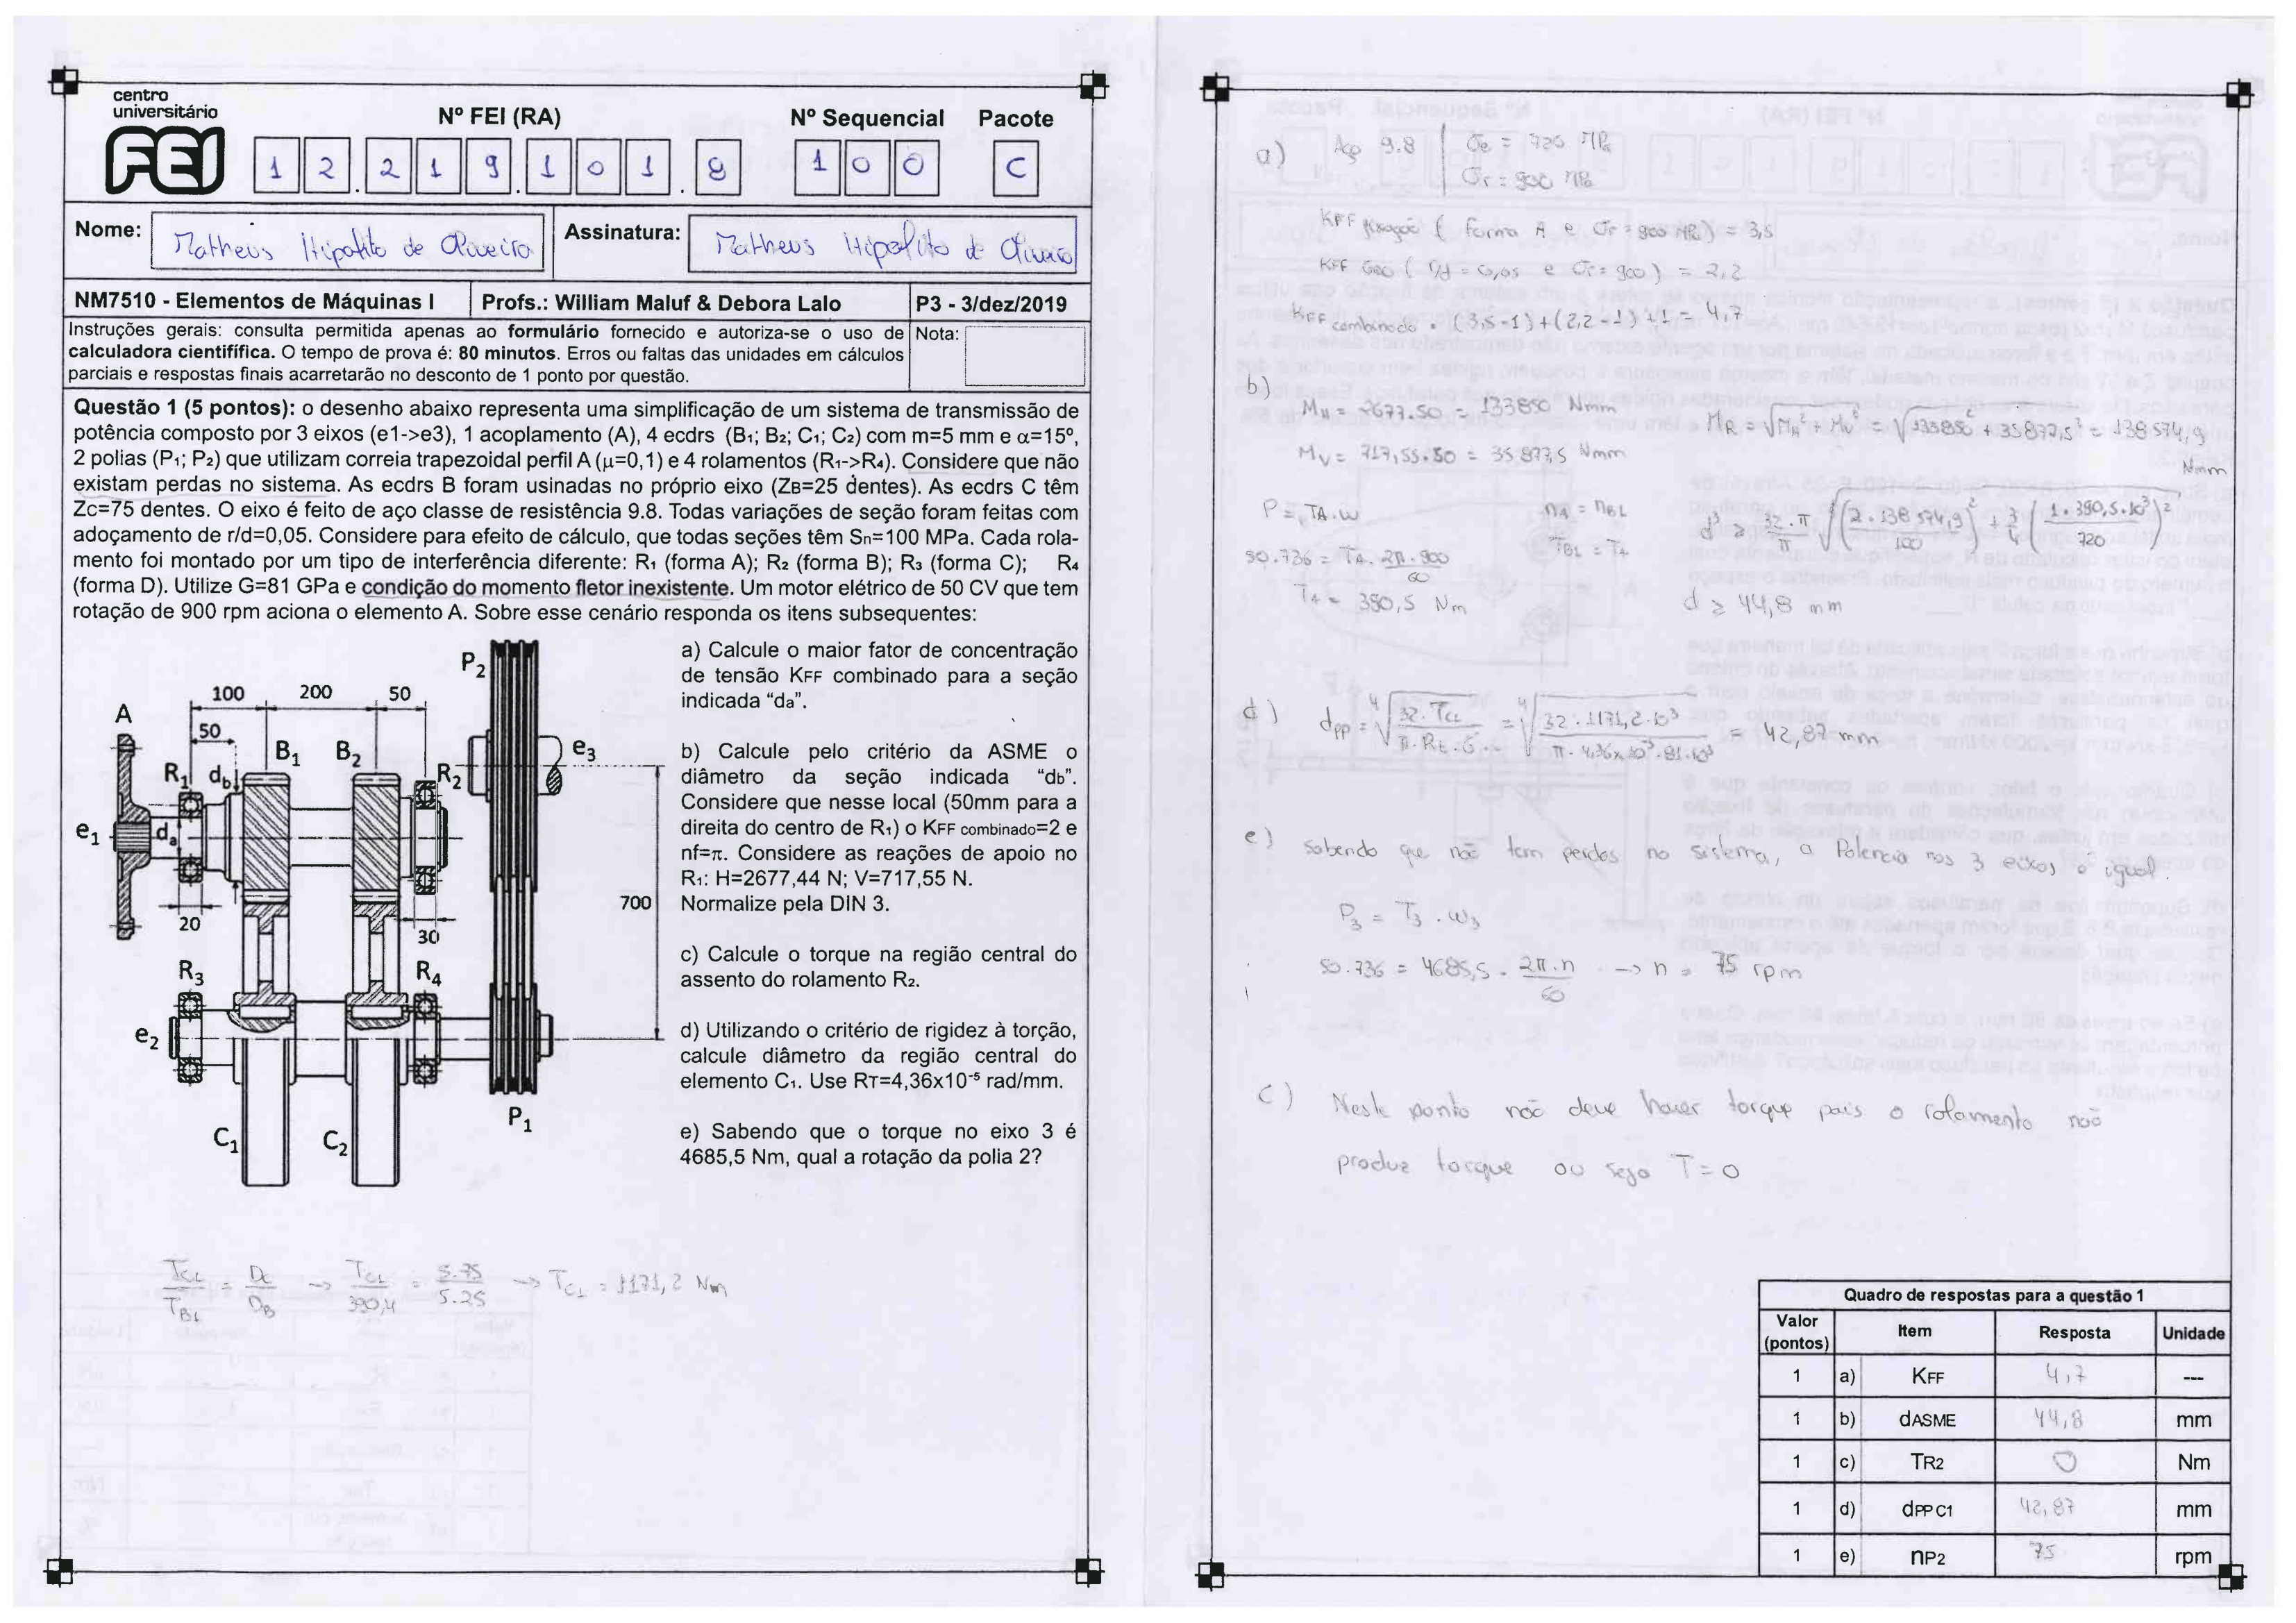 centro
universitário
FEI
Nº FEI (RA)
Nº Sequencial
Pacote
1 2 . 2 1 9 . 1 0 1 . 8
1 0 0
C
Nome:
Matheus Hipolito de Oliveira
Assinatura:
Matheus Hipolito de Oliveira
NM7510 - Elementos de Máquinas I
Profs.: William Maluf & Debora Lalo
P3 - 3/dez/2019
Instruções gerais: consulta permitida apenas ao formulário fornecido e autoriza-se o uso de
calculadora cientifífica. O tempo de prova é: 80 minutos. Erros ou faltas das unidades em cálculos
parciais e respostas finais acarretarão no desconto de 1 ponto por questão.
Nota:
Questão 1 (5 pontos): o desenho abaixo representa uma simplificação de um sistema de transmissão de
potência composto por 3 eixos (e1->e3), 1 acoplamento (A), 4 ecdrs (B1; B2; C1; C2) com m=5 mm e α=15º,
2 polias (P1; P2) que utilizam correia trapezoidal perfil A (μ=0,1) e 4 rolamentos (R1->R4). Considere que não
existam perdas no sistema. As ecdrs B foram usinadas no próprio eixo (ZB=25 dentes). As ecdrs C têm
Zc=75 dentes. O eixo é feito de aço classe de resistência 9.8. Todas variações de seção foram feitas com
adoçamento de r/d=0,05. Considere para efeito de cálculo, que todas seções têm Sn=100 MPa. Cada rola-
mento foi montado por um tipo de interferência diferente: R1 (forma A); R2 (forma B); R3 (forma C); R4
(forma D). Utilize G=81 GPa e condição do momento fletor inexistente. Um motor elétrico de 50 CV que tem
rotação de 900 rpm aciona o elemento A. Sobre esse cenário responda os itens subsequentes:
100 200 50
50
A
B1 B2
R1 db
R2
e1
da
20
30
R3 R4
e2
C1 C2
P1
P2
e3
700
a) Calcule o maior fator de concentração
de tensão KFF combinado para a seção
indicada “da”.
b) Calcule pelo critério da ASME o
diâmetro da seção indicada “db”.
Considere que nesse local (50mm para a
direita do centro de R1) o KFF combinado=2 e
nf=π. Considere as reações de apoio no
R1: H=2677,44 N; V=717,55 N.
Normalize pela DIN 3.
c) Calcule o torque na região central do
assento do rolamento R2.
d) Utilizando o critério de rigidez à torção,
calcule diâmetro da região central do
elemento C1. Use RT=4,36x10-5 rad/mm.
e) Sabendo que o torque no eixo 3 é
4685,5 Nm, qual a rotação da polia 2?
TC1/TB1 = DC/DB -> TC1/390,4 = 5.75/5.25 -> TC1 = 1171,2 Nm
a) Aço 9.8 | σe = 720 MPa
σr = 900 MPa
KFF fixação ( forma A e σr = 900 MPa ) = 3,5
KFF Geo ( r/d = 0,05 e σr = 900 ) = 2,2
KFF combinado = (3,5-1)+(2,2-1)+1 = 4,7
b)
MH = 2677.50 = 133850 Nmm
MV = 717,55.50 = 35877,5 Nmm
MR = √MH² + MV² = √133850² + 35877,5² = 138574,9
Nmm
P = TA.ω
nA = nB1
TB1 = TA
50.736 = TA. 2π.900/60
TA = 390,5 Nm
d³ ≥ 32.π/π √(2.138574,9/100)² + 3/4 (1.390,5.10³/720)²
d ≥ 44,8 mm
d) dPP = ⁴√32.TC1/π.RT.G = ⁴√32.1171,2.10³/π.4,36x10⁻⁵.81.10³ = 42,87 mm
e) Sabendo que não tem perdas no sistema, a Potencia nos 3 eixos é igual.
P3 = T3.ω3
50.736 = 4685,5 . 2π.n/60 -> n = 75 rpm
c) Neste ponto não deve haver torque pois o rolamento não
produz torque ou seja T=0
Quadro de respostas para a questão 1
Valor (pontos) Item Resposta Unidade
1 a) KFF 4,7 ---
1 b) dASME 44,8 mm
1 c) TR2 0 Nm
1 d) dPP C1 42,87 mm
1 e) nP2 75 rpm